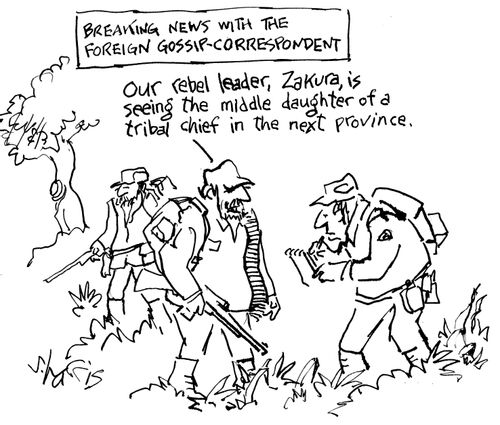 BREAKING NEWS WITH THE
FOREIGN GOSSIP-CORRESPONDENT
Our rebel leader, Zakura, is
seeing the middle daughter of a
tribal chief in the next province.